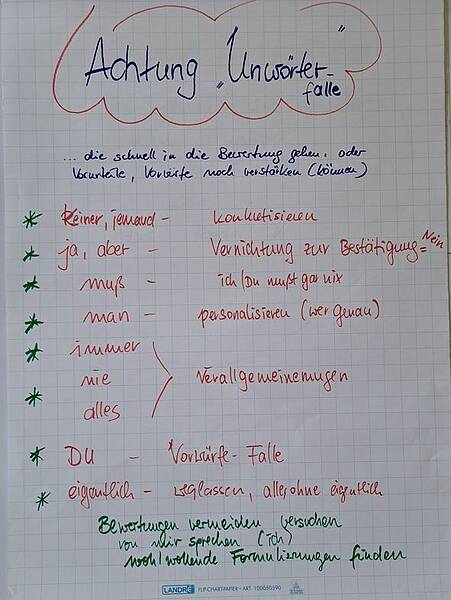 Achtung "Unwörter-
falle"
... die schnell in die Bewertung gehen, oder
Vorurteile, Vorwürfe noch verstärken (können)
* Keiner, jemand - konkretisieren
* ja, aber - Vernichtung zur Bestätigung = Nein
* muß - ich/Du mußt gar nix
* man - personalisieren (wer genau)
* immer
nie Verallgemeinerungen
* alles
* DU - Vorwürfe-Falle
* eigentlich - weglassen, alles ohne eigentlich
Bewertungen vermeiden versuchen
von mir sprechen (ich)
wohlwollende Formulierungen finden
LANDRÉ FLIP-CHART-PAPIER - ART. 100050590